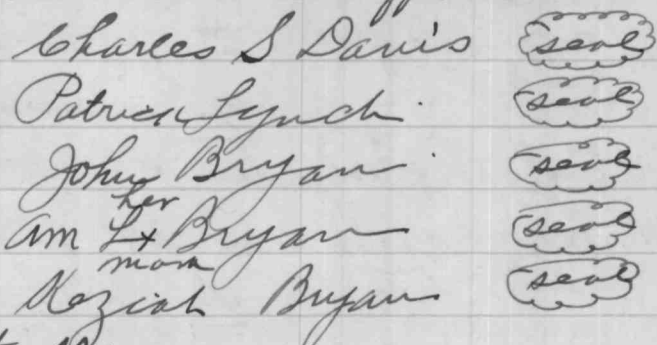 Charles S Davis seal
Patrick Lynch seal
John Bryan seal
her
Am L x Bryan seal
mark
Keziah Bryan seal